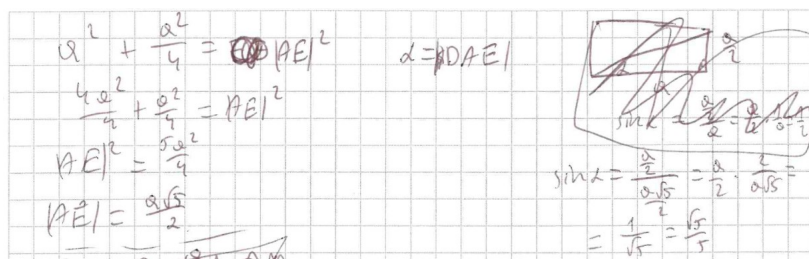 a² + a²/4 = |AE|²
4a²/4 + a²/4 = |AE|²
|AE|² = 5a²/4
|AE| = a√5/2
α = |DAE|
a/2
sin α = (a/2)/(a√5/2) = a/2 · 2/(a√5) =
= 1/√5 = √5/5